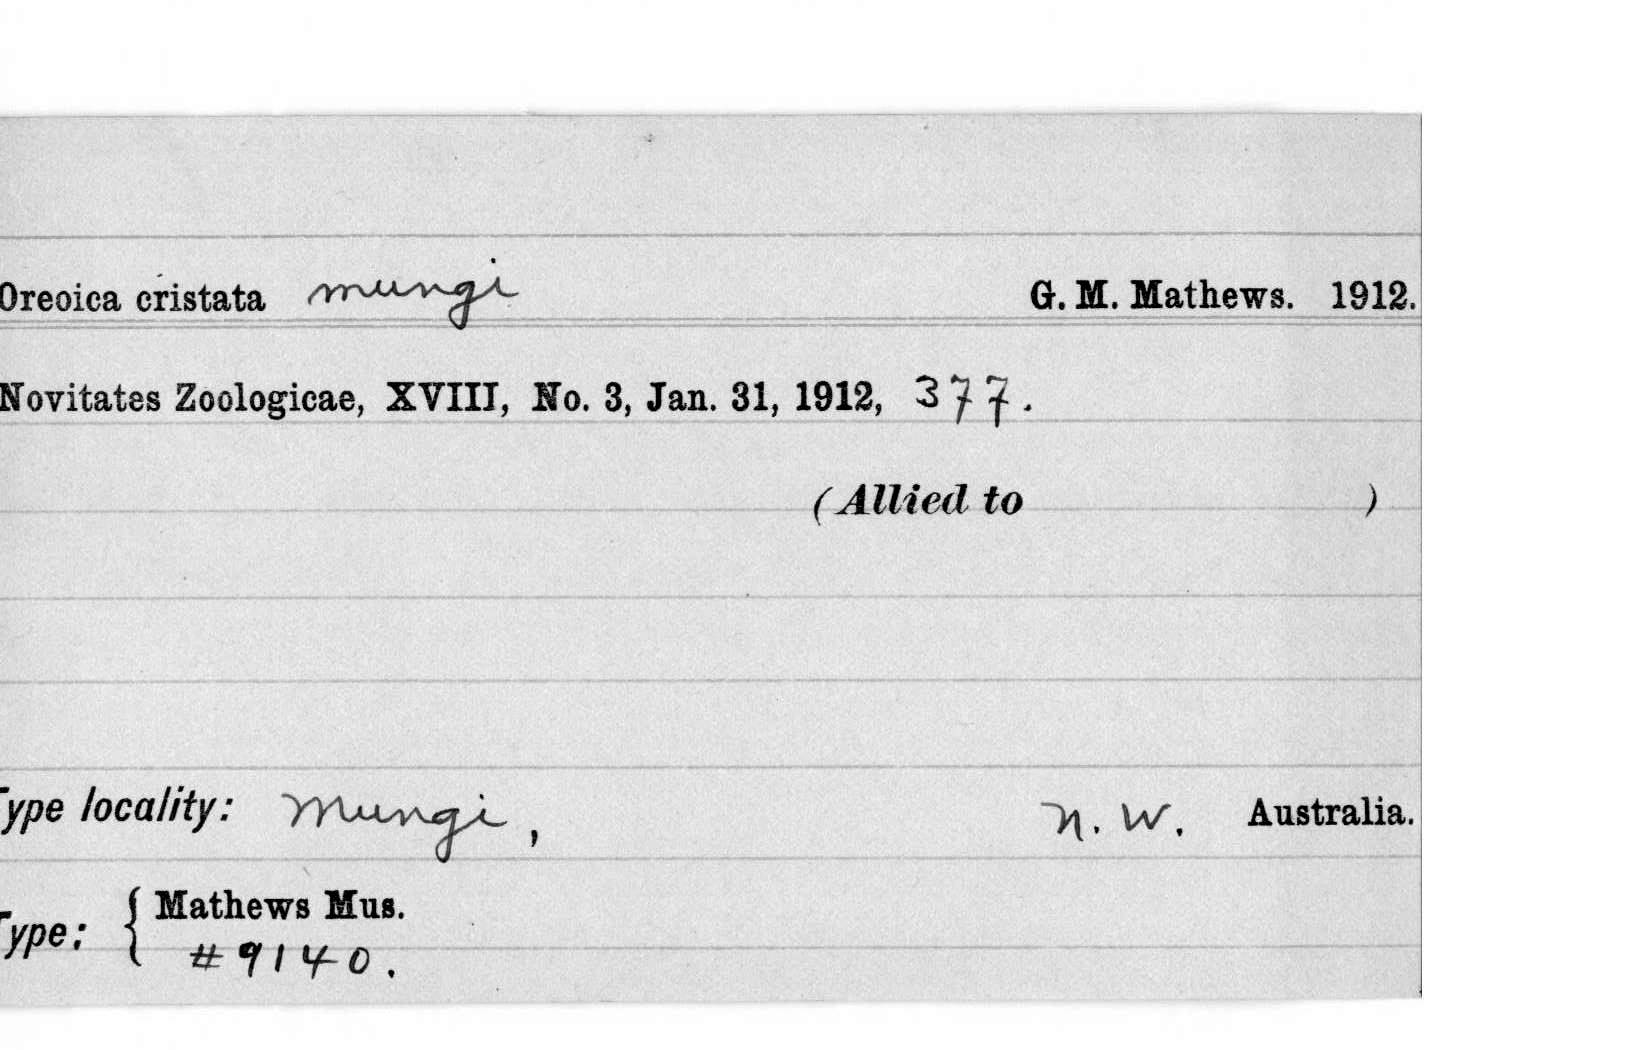 Oreoica cristata mungi G. M. Mathews. 1912.
Novitates Zoologicae, XVIII, No. 3, Jan. 31, 1912, 377.
(Allied to )
Type locality: Mungi, N. W. Australia.
Type: { Mathews Mus.
#9140.